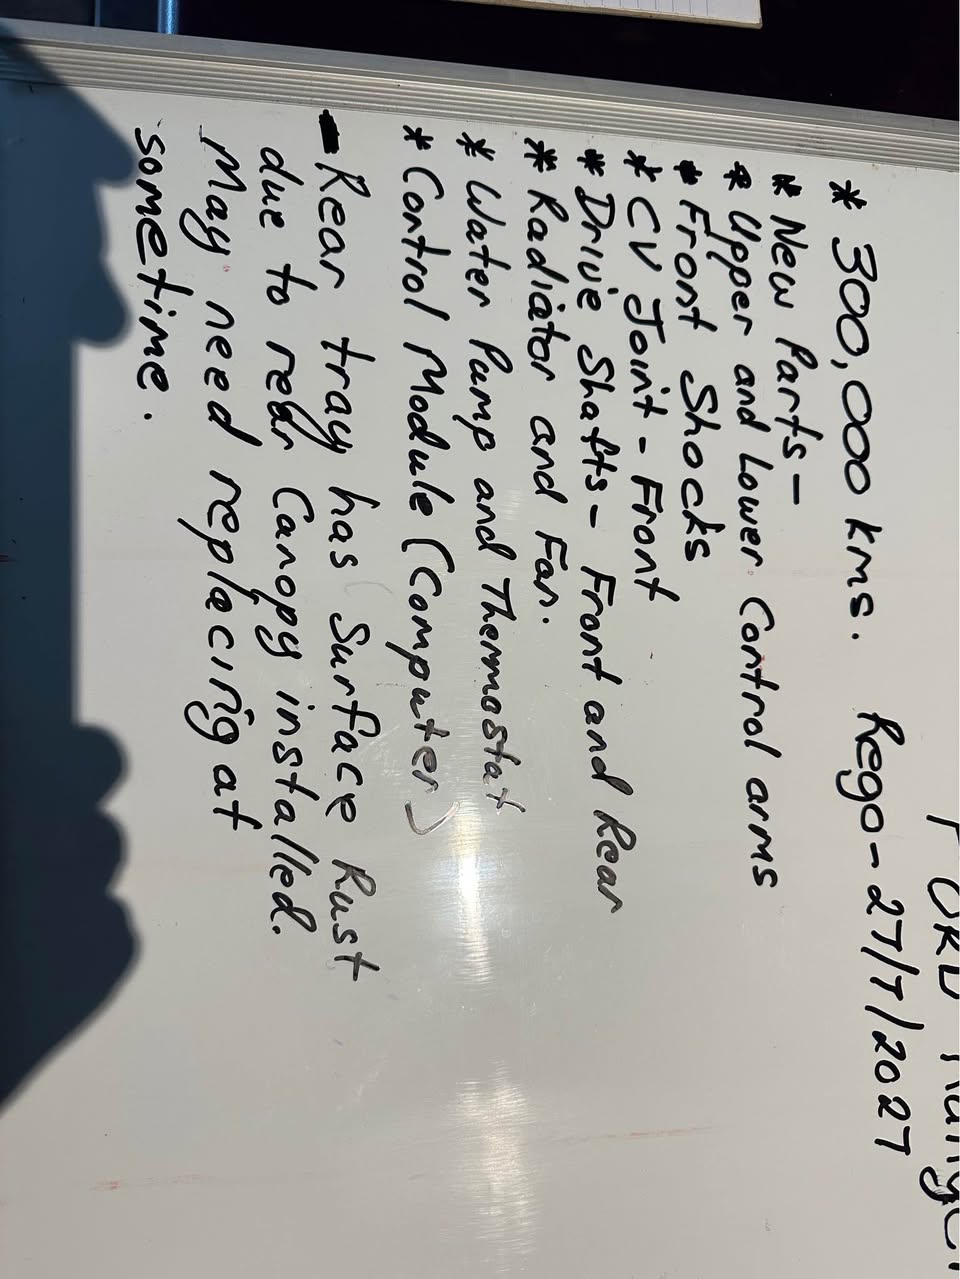 FORD Ranger
* 300,000 kms. Rego - 27/7/2027
* New Parts -
* Upper and Lower Control arms
* Front Shocks
* CV Joint - Front
* Drive Shafts - Front and Rear
* Radiator and Fan.
* Water Pump and Thermostat
* Control Module (Computer)
- Rear tray has Surface Rust
due to rear Canopy installed.
May need replacing at
sometime.